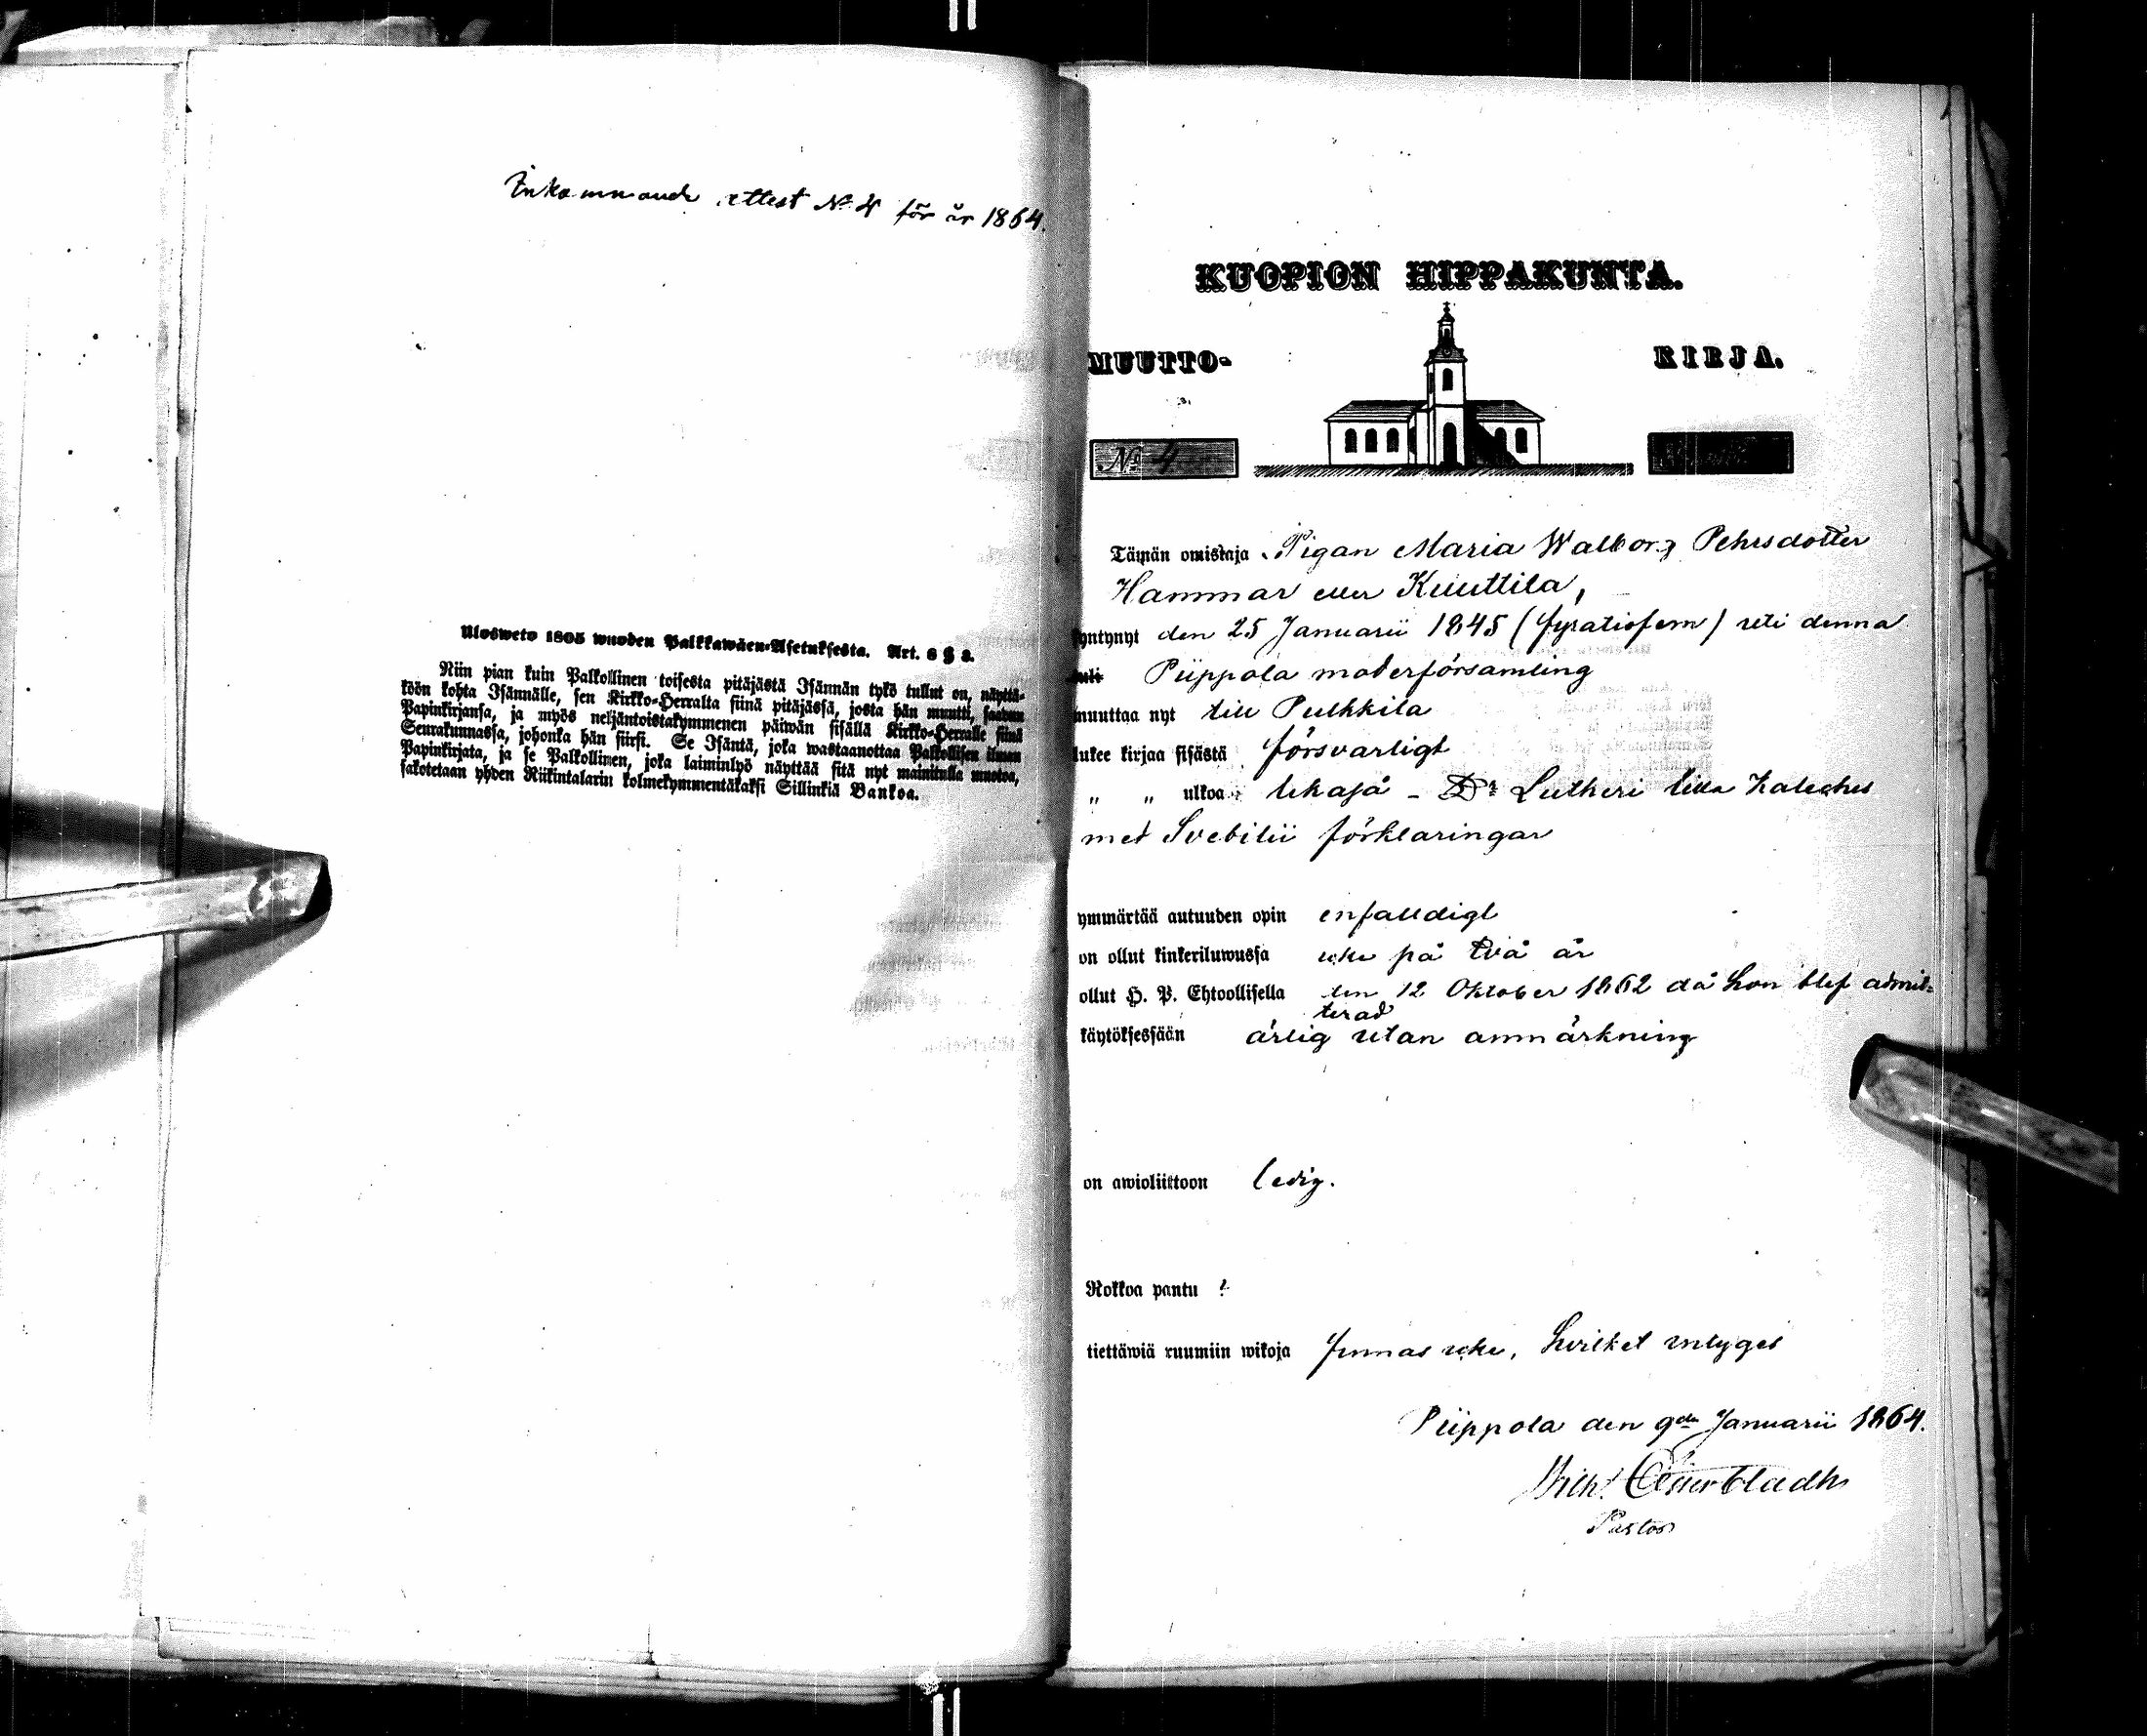 Inkommande attest No 4 för år 1864.
Ulosweto 1805 wuoden Palkkawäen-Asetuksesta. Art. 6 § 3.
Niin pian kuin Palkollinen toisesta pitäjästä Isännän tykö tullut on, näyttä-
köön kohta Isännälle, sen Kirkko-Herralta siinä pitäjässä, josta hän muutti, saadun
Papinkirjansa, ja myös neljäntoistakymmenen päiwän sisällä Kirkko-Herralle siinä
Seurakunnassa, johonka hän siirsi. Se Isäntä, joka wastaanottaa Palkollisen ilman
Papinkirjata, ja se Palkollinen, joka laiminlyö näyttää sitä nyt mainitulla muotoa,
sakotetaan yhden Riikintalarin kolmekymmentäkaksi Sillinkiä Bankoa.
KUOPION HIPPAKUNTA.
MUUTTO- KIRJA.
No 4
Tämän omistaja Pigan Maria Walborg Pehrsdotter
Hammar eller Kuuttila,
syntynyt den 25 Januarii 1845 (fyratiofem) uti denna
Piippola moderförsamling
muuttaa nyt till Pulkkila
lukee kirjaa sisästä försvarligt
" " ulkoa likaså - Dr Lutheri lilla Kateches
med Svebilii förklaringar
ymmärtää autuuden opin enfalldigt
on ollut kinkeriluwussa icke på två år
ollut H. P. Ehtoollisella den 12 Oktober 1862 då hon blef admit-
terad
käytöksessään ärlig utan anmärkning
on awioliittoon ledig.
Rokkoa pantu ?
tiettäwiä ruumiin wikoja finnas icke, hvilket intygas
Piippola den 9de Januarii 1864.
Wilh. Österbladh
Pastor